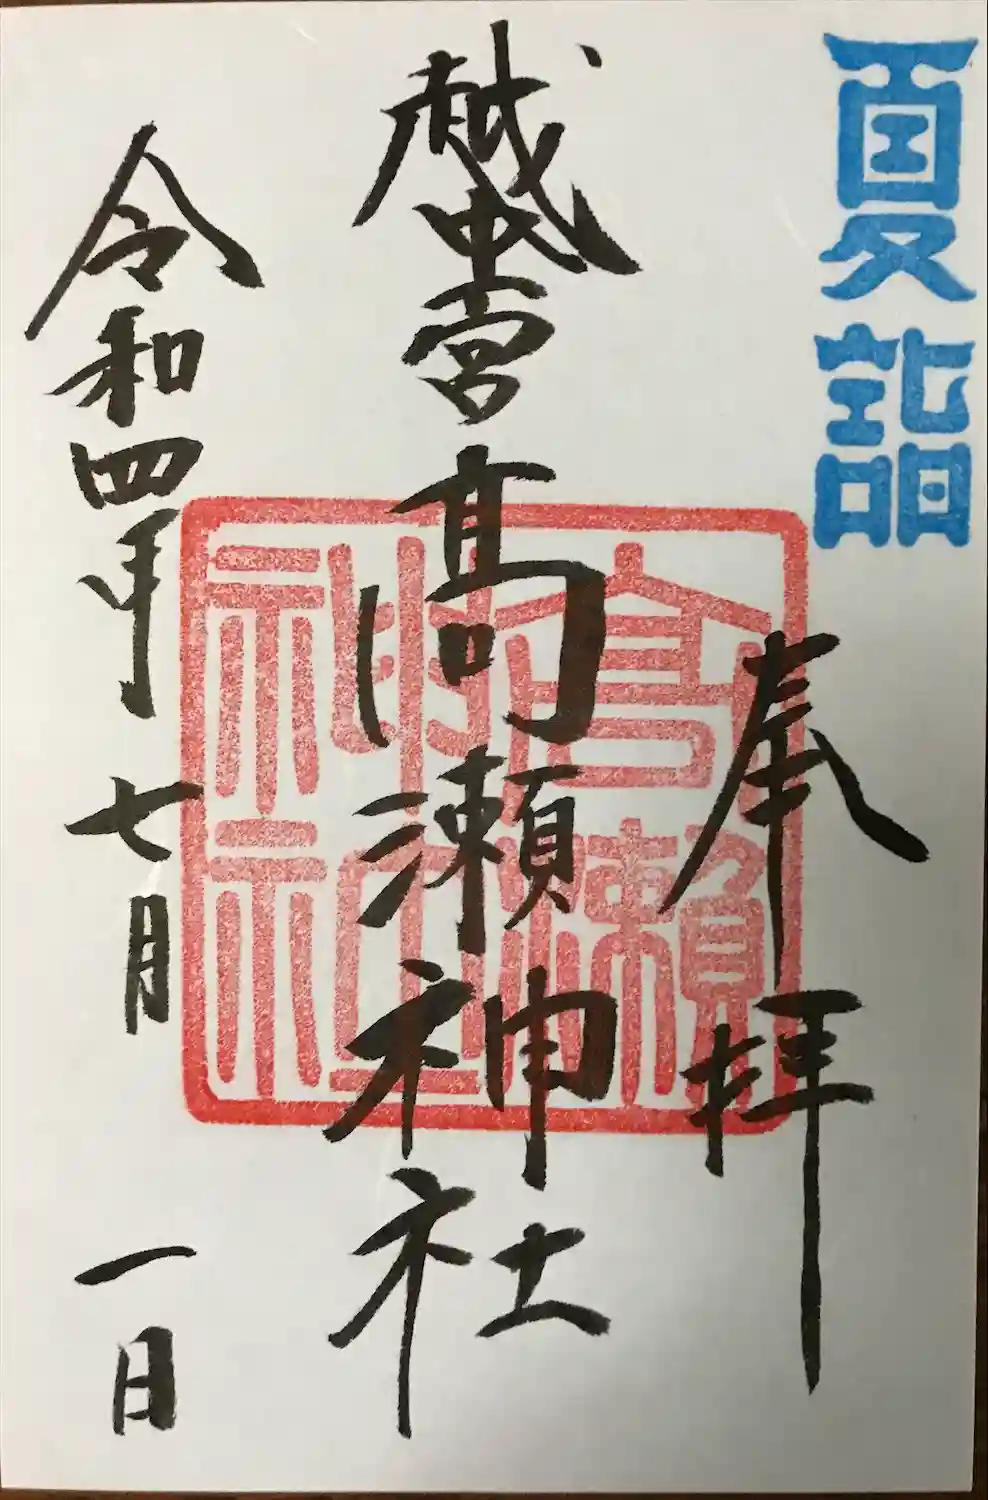 夏詣
奉拝
越中一宮高瀬神社
令和四年七月一日
高瀬
神社